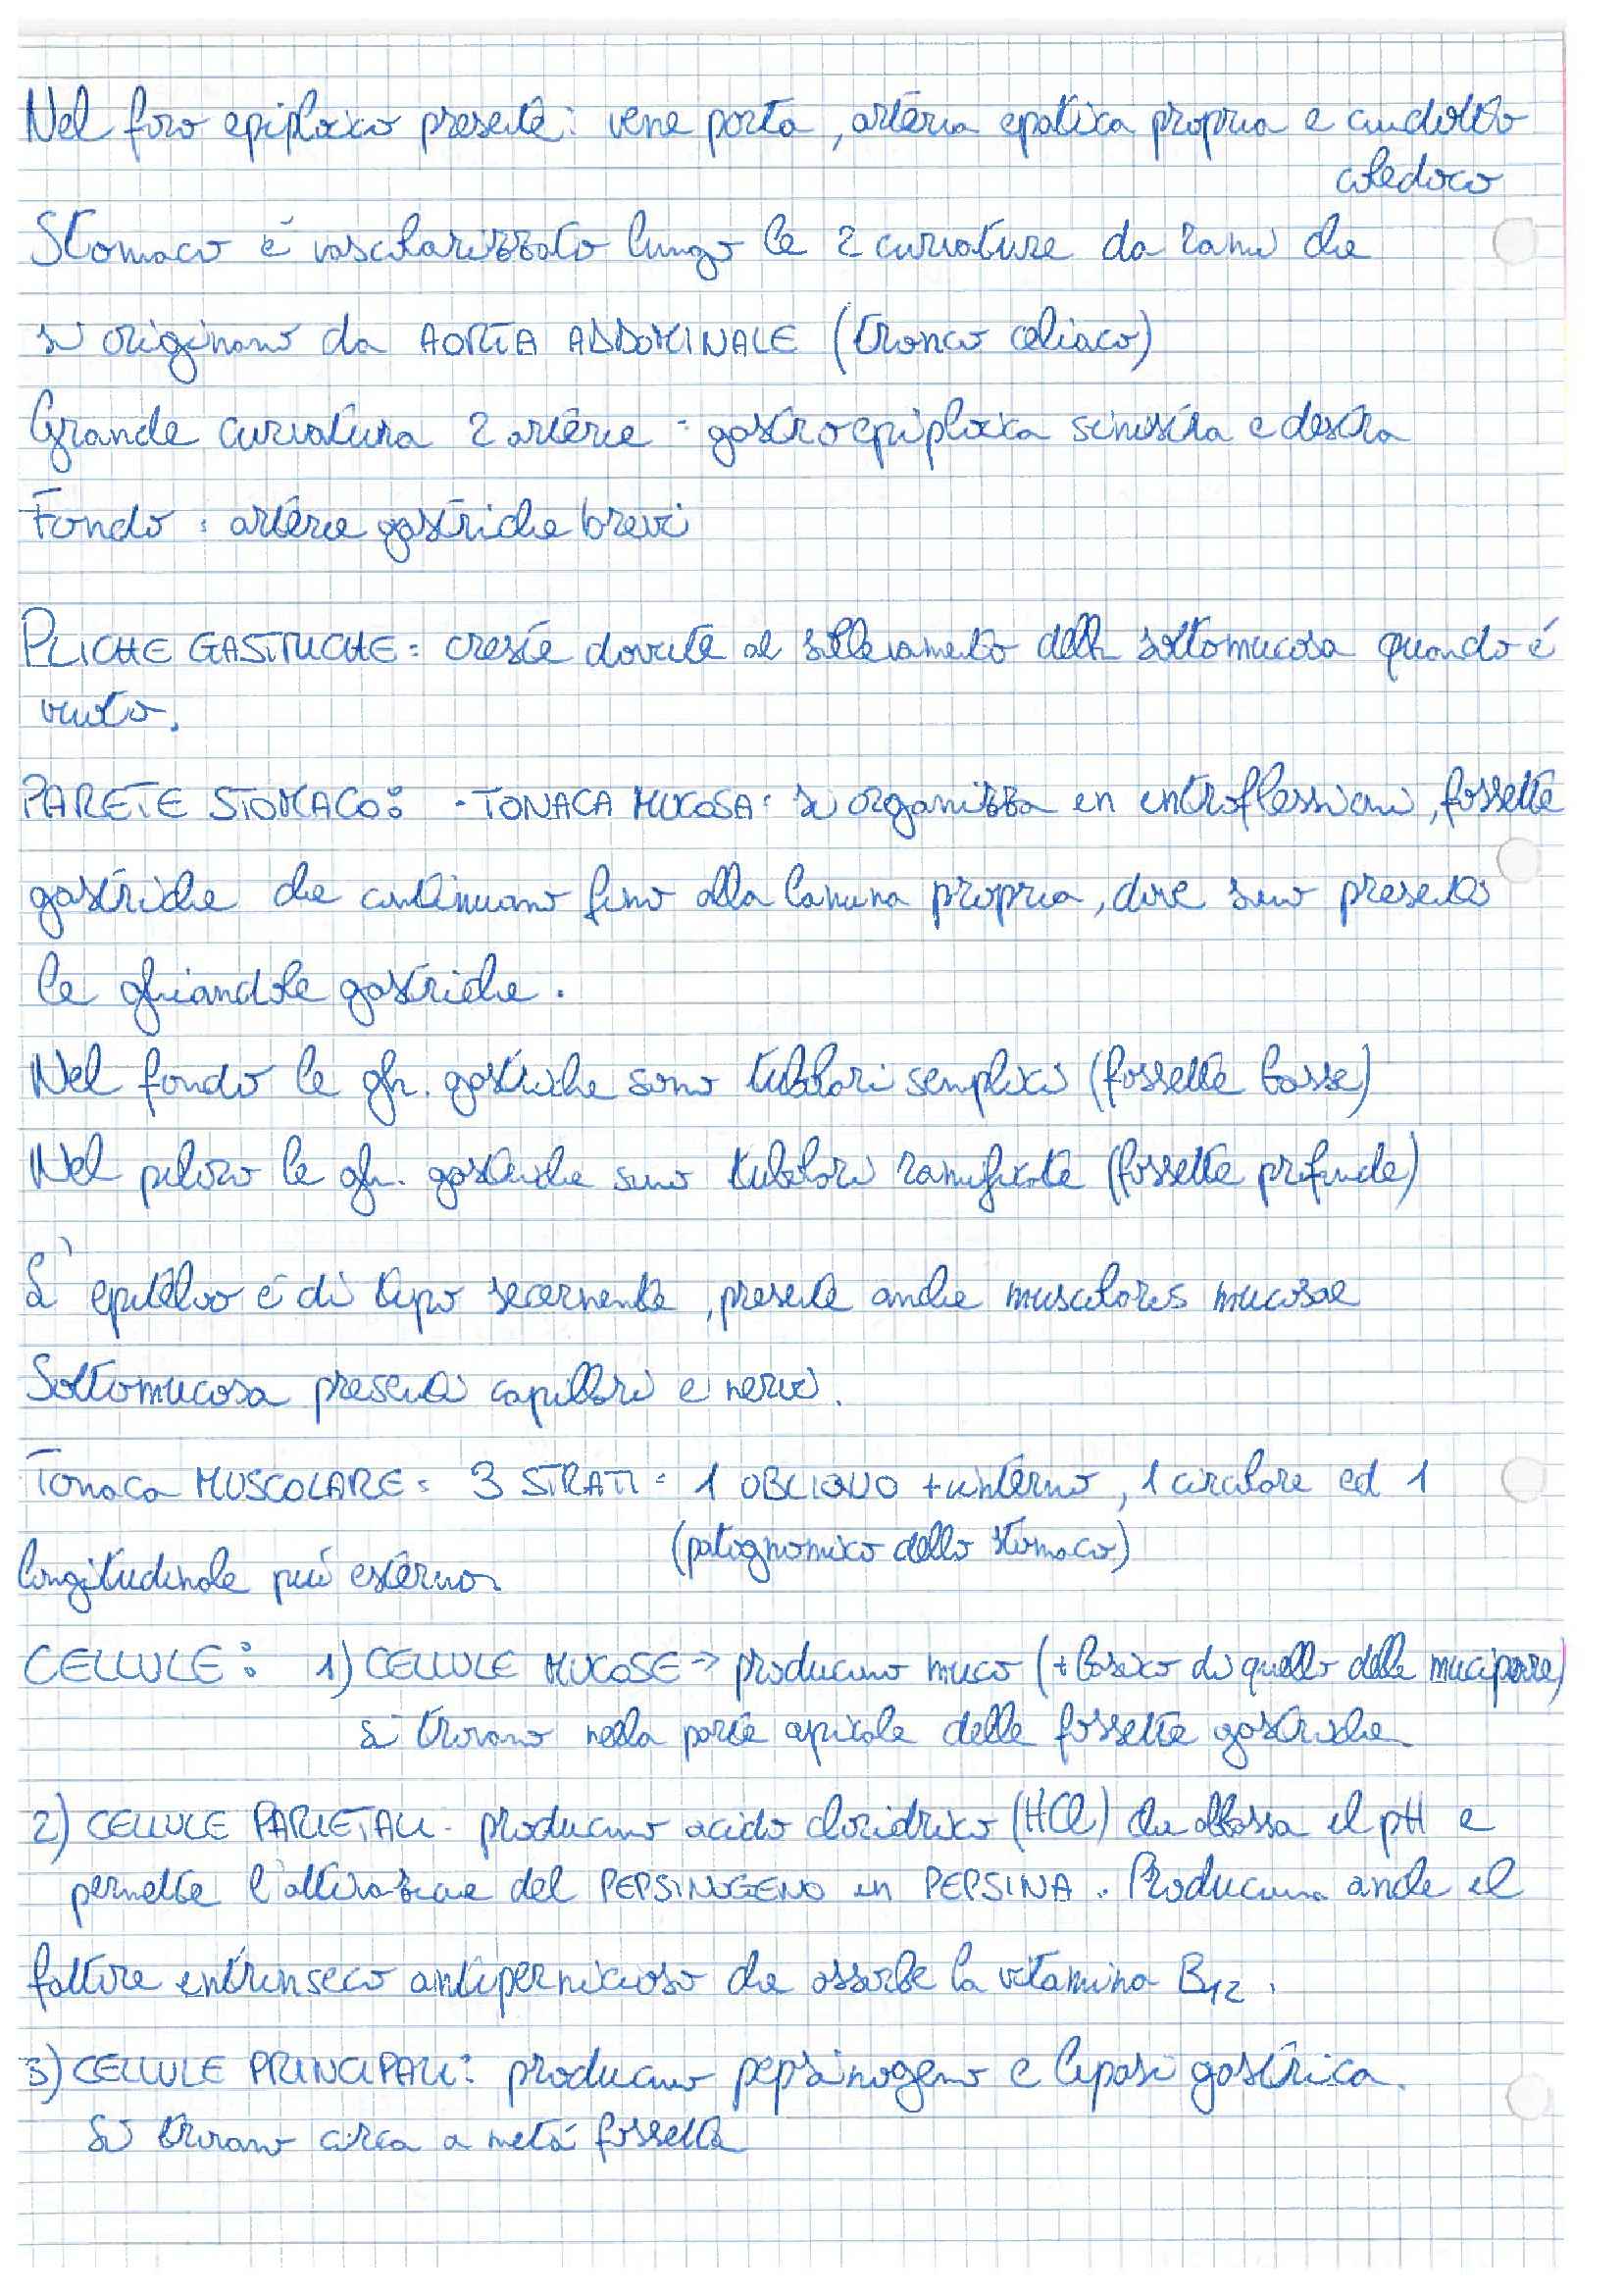 Nel foro epiploico presente: vena porta, arteria epatica propria e condotto
coledoco
Stomaco è vascolarizzato lungo le 2 curvature da rami che
si originano da AORTA ADDOMINALE (tronco celiaco)
Grande curvatura 2 arterie: gastroepiploica sinistra e destra
Fondo: arterie gastriche brevi
PLICHE GASTRICHE: creste dovute al sollevamento della sottomucosa quando è
vuoto.
PARETE STOMACO: - TONACA MUCOSA: si organizza in introflessioni, fossette
gastriche che continuano fino alla lamina propria, dove sono presenti
le ghiandole gastriche.
Nel fondo le gh. gastriche sono tubolari semplici (fossette basse)
Nel piloro le gh. gastriche sono tubolari ramificate (fossette profonde)
L'epitelio è di tipo secernente, presente anche muscolaris mucosae
Sottomucosa presenta capillari e nervi.
Tonaca MUSCOLARE: 3 STRATI: 1 OBLIQUO + interno, 1 circolare ed 1
(patognomico dello stomaco)
longitudinale più esterno
CELLULE: 1) CELLULE MUCOSE → producono muco (+ basico di quello delle mucipare)
si trovano nella parte apicale delle fossette gastriche
2) CELLULE PARIETALI: producono acido cloridrico (HCl) che abbassa il pH e
permette l'attivazione del PEPSINOGENO in PEPSINA. Producono anche il
fattore intrinseco antipernicioso che assorbe la vitamina B12.
3) CELLULE PRINCIPALI: producono pepsinogeno e lipasi gastrica.
Si trovano circa a metà fossetta